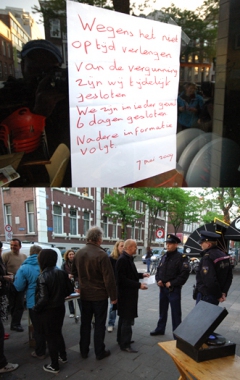 Wegens het niet
op tijd verlengen
van de vergunning
zijn wij tijdelijk
gesloten
We zijn in ieder geval
6 dagen gesloten
Nadere informatie
volgt.
7 mei 2009